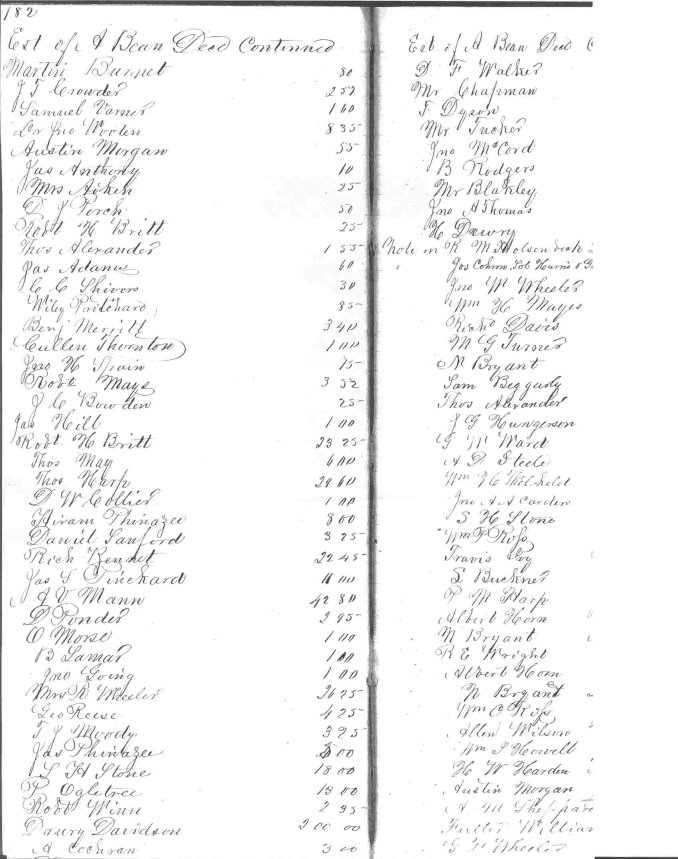 182
Est of A Bean Decd Continued
Martin Burnet 80
J T Crowder 2 57
Samuel Varner 1 60
Dr Jno Wooten 8 35
Austin Morgan 55
Jas Anthony 10
Mrs Aiken 25
D J Porch 50
Robt H Britt 25
Thos Alexander 1 55
Jas Adams 60
C C Shivers 30
Wiley Pritchard 85
Benj Merritt 3 40
Cullen Thornton 1 00
Jno H Spain 75
Robt Mays 3 52
J C Bowden 25
Jas Hill 1 00
Robt H Britt 23 25
Thos May 6 00
Thos Harp 29 60
D W Collier 1 00
Hiram Phinazee 8 00
Daniel Sanford 3 25
Rich Bennet 22 45
Jas S Pinckard 11 00
J V Mann 42 80
D Ponder 2 95
O Morse 1 00
B Lamar 1 00
Jno Going 1 00
Mrs R Wheeler 26 75
Geo Reese 4 25
T J Moody 3 25
Jas Phinazee 5 00
S H Stone 18 00
P Ogletree 18 00
Robt Winn 2 95
Drury Davidson 200 00
A Cochran 3 00
Est of A Bean Decd C
D F Walker
Mr Chapman
F Dyson
Mr Tucker
Jno McCord
B Rodgers
Mr Blakley
Jno A Thomas
H Dewry
Note on R M
Jas Cohron Harris &
Jno W Wheeler
Wm H Mayes
Richd Davis
M G Turner
N Bryant
Sam Beggarly
Thos Alexander
J G Hungerson
G W Ward
A D Steele
Wm H
Jno A A Carden
S H Stone
Wm P Ross
Travis Ivy
S Buckner
P M Harp
Albert Horn
N Bryant
R E Wright
Albert Horn
N Bryant
Wm C Ross
Allen Wilson
Wm J Howell
H W Harden
Austin Morgan
A M Sheppard
Fuller William
G F Wheeler